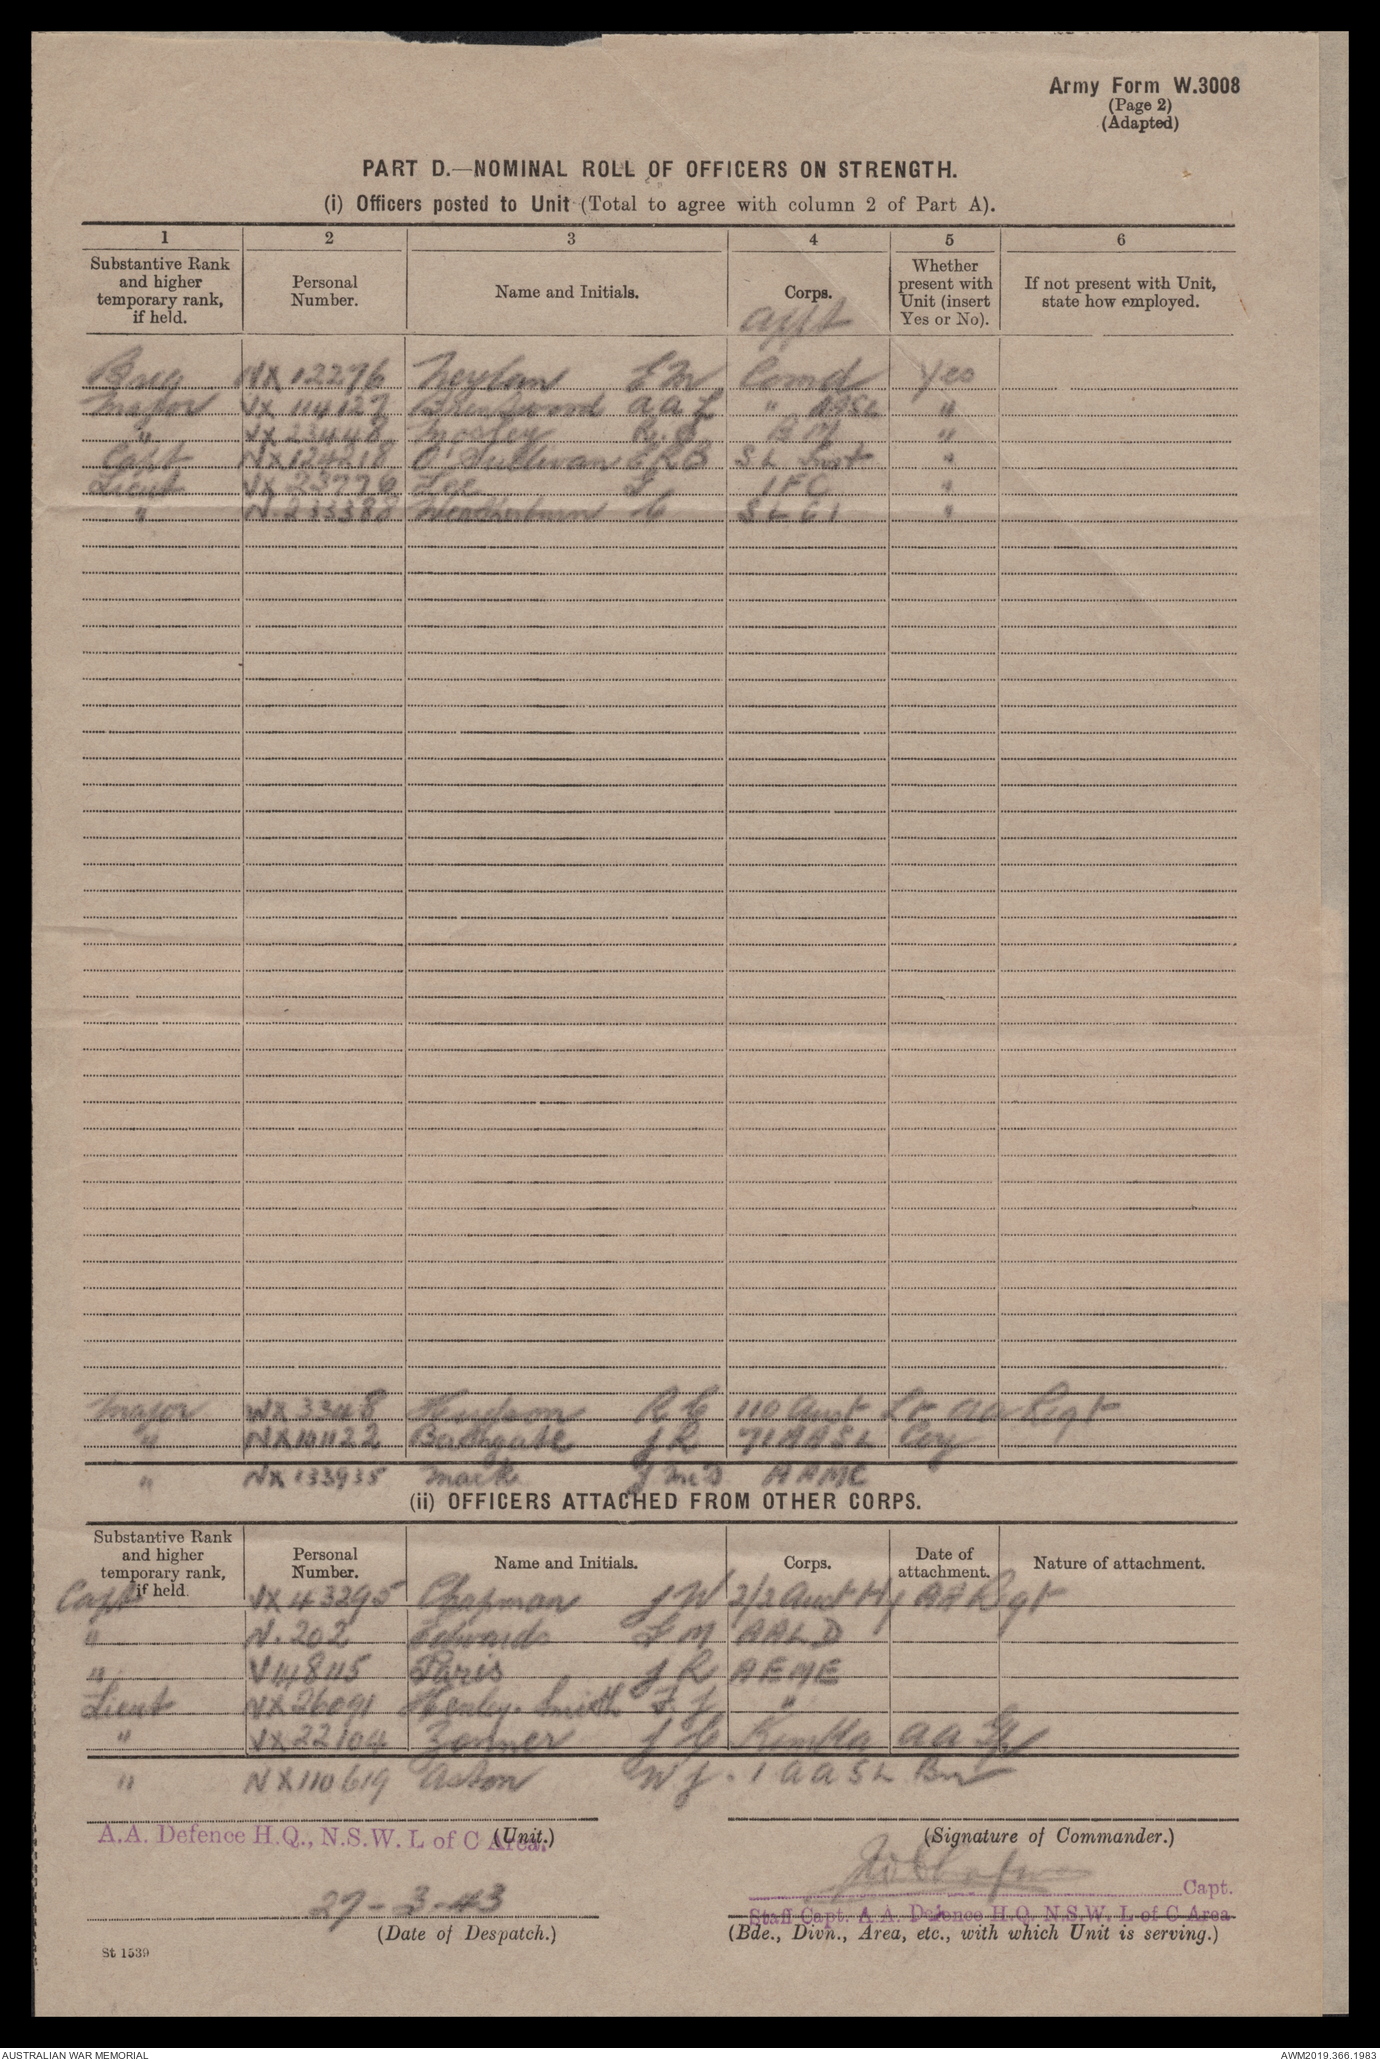 Army Form W.3008
(Page 2)
(Adapted)
PART D.—NOMINAL ROLL OF OFFICERS ON STRENGTH.
(i) Officers posted to Unit (Total to agree with column 2 of Part A).
1 2 3 4 5 6
Substantive Rank and higher temporary rank, if held. Personal Number. Name and Initials. Corps. Whether present with Unit (insert Yes or No). If not present with Unit, state how employed.
appt
Brig NX 12276 Neylan E M Comd Yes
Major VX 114127 A A L " AASL "
" VX 23448 Mosley B M "
Capt NX 124218 O'Sullivan E R B S L Inst "
Lieut VX 23776 Lee I F C "
" N. 233388 Weatherburn C S L G 1 "
Major WX 3348 Hudson R C 110 Aust Lt aa Rigt
" NX 101122 Bathgate J R 71 AASL Coy
" NX 133935 Mack J McD AAMC
(ii) OFFICERS ATTACHED FROM OTHER CORPS.
Substantive Rank and higher temporary rank, if held. Personal Number. Name and Initials. Corps. Date of attachment. Nature of attachment.
Capt VX 43295 Chapman J W 2/2 Aust Hy AA Rgt
" N. 202 Edwards F M AALD
" V148115 Paris J R AEME
Lieut NX 26091 Henley-Smith F J "
" VX 22104 J C Kembla a a
" NX 110619 Aston W J. 1 a a S L
A.A. Defence H.Q., N.S.W. L of C Area.
(Unit.)
(Signature of Commander.)
JW Chapman
Capt.
27-3-43
Staff Capt. A.A. Defence H.Q. N.S.W. L of C Area
(Date of Despatch.)
(Bde., Divn., Area, etc., with which Unit is serving.)
St 1539
AUSTRALIAN WAR MEMORIAL
AWM2019.366.1983